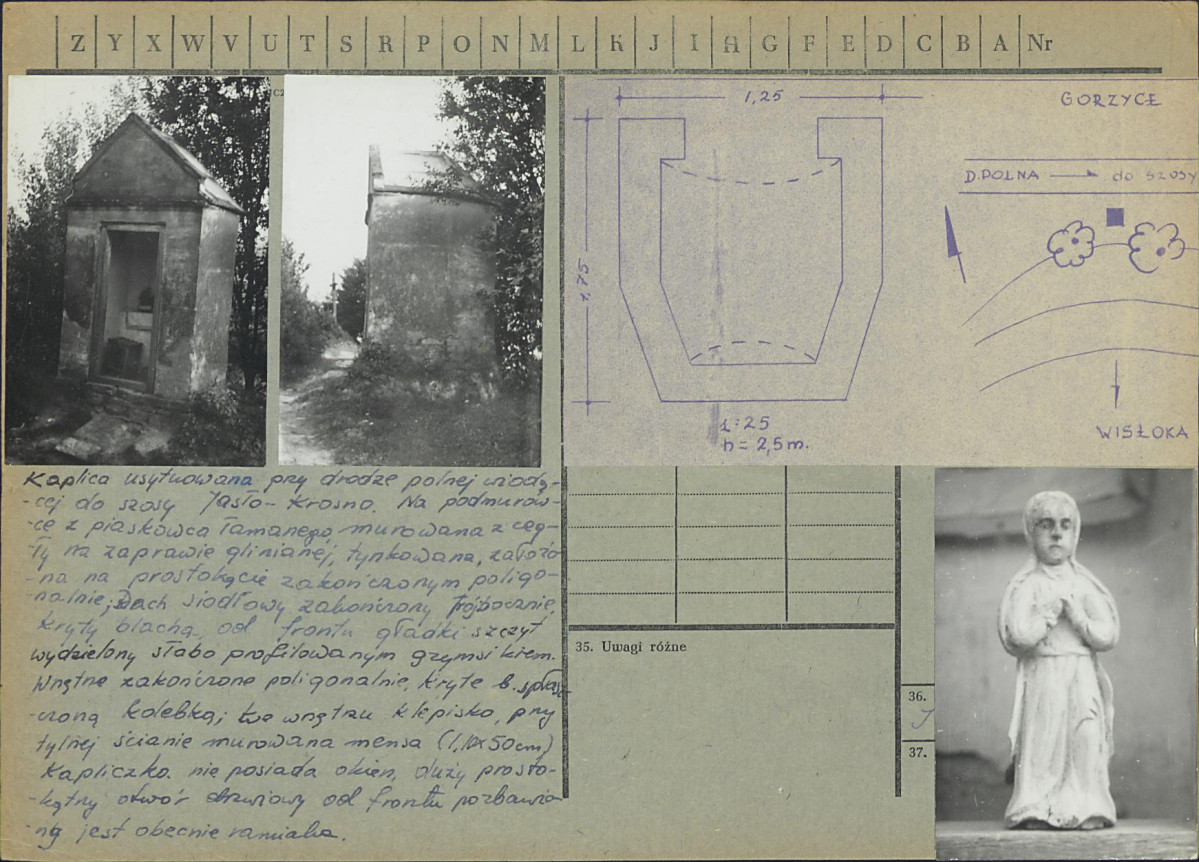 Z Y X W V U T S R P O N M L K J I H G F E D C B A Nr
1,25
GORZYCE
D. POLNA → do szosy
1,75
1:25
h = 2,5 m.
WISŁOKA
Kaplica usytuowana przy drodze polnej wiodą-
-cej do szosy Jasło-Krosno. Na podmurów-
-ce z piaskowca łamanego, murowana z ceg-
-ły na zaprawie glinianej, tynkowana, założo
-na na prostokącie zakończonym poligo-
-nalnie; Dach siodłowy zakończony trójbocznie,
kryty blachą, od frontu gładki szczyt
wydzielony słabo profilowanym gzymsikiem.
Wnętrze zakończone poligonalnie, kryte b. spłasz
-czoną kolebką; we wnętrzu klepisko, przy
tylnej ścianie murowana mensa (1,10x50cm)
Kapliczka nie posiada okien, duży prosto-
-kątny otwór drzwiowy od frontu pozbawio-
-ny jest obecnie
35. Uwagi różne
36.
37.